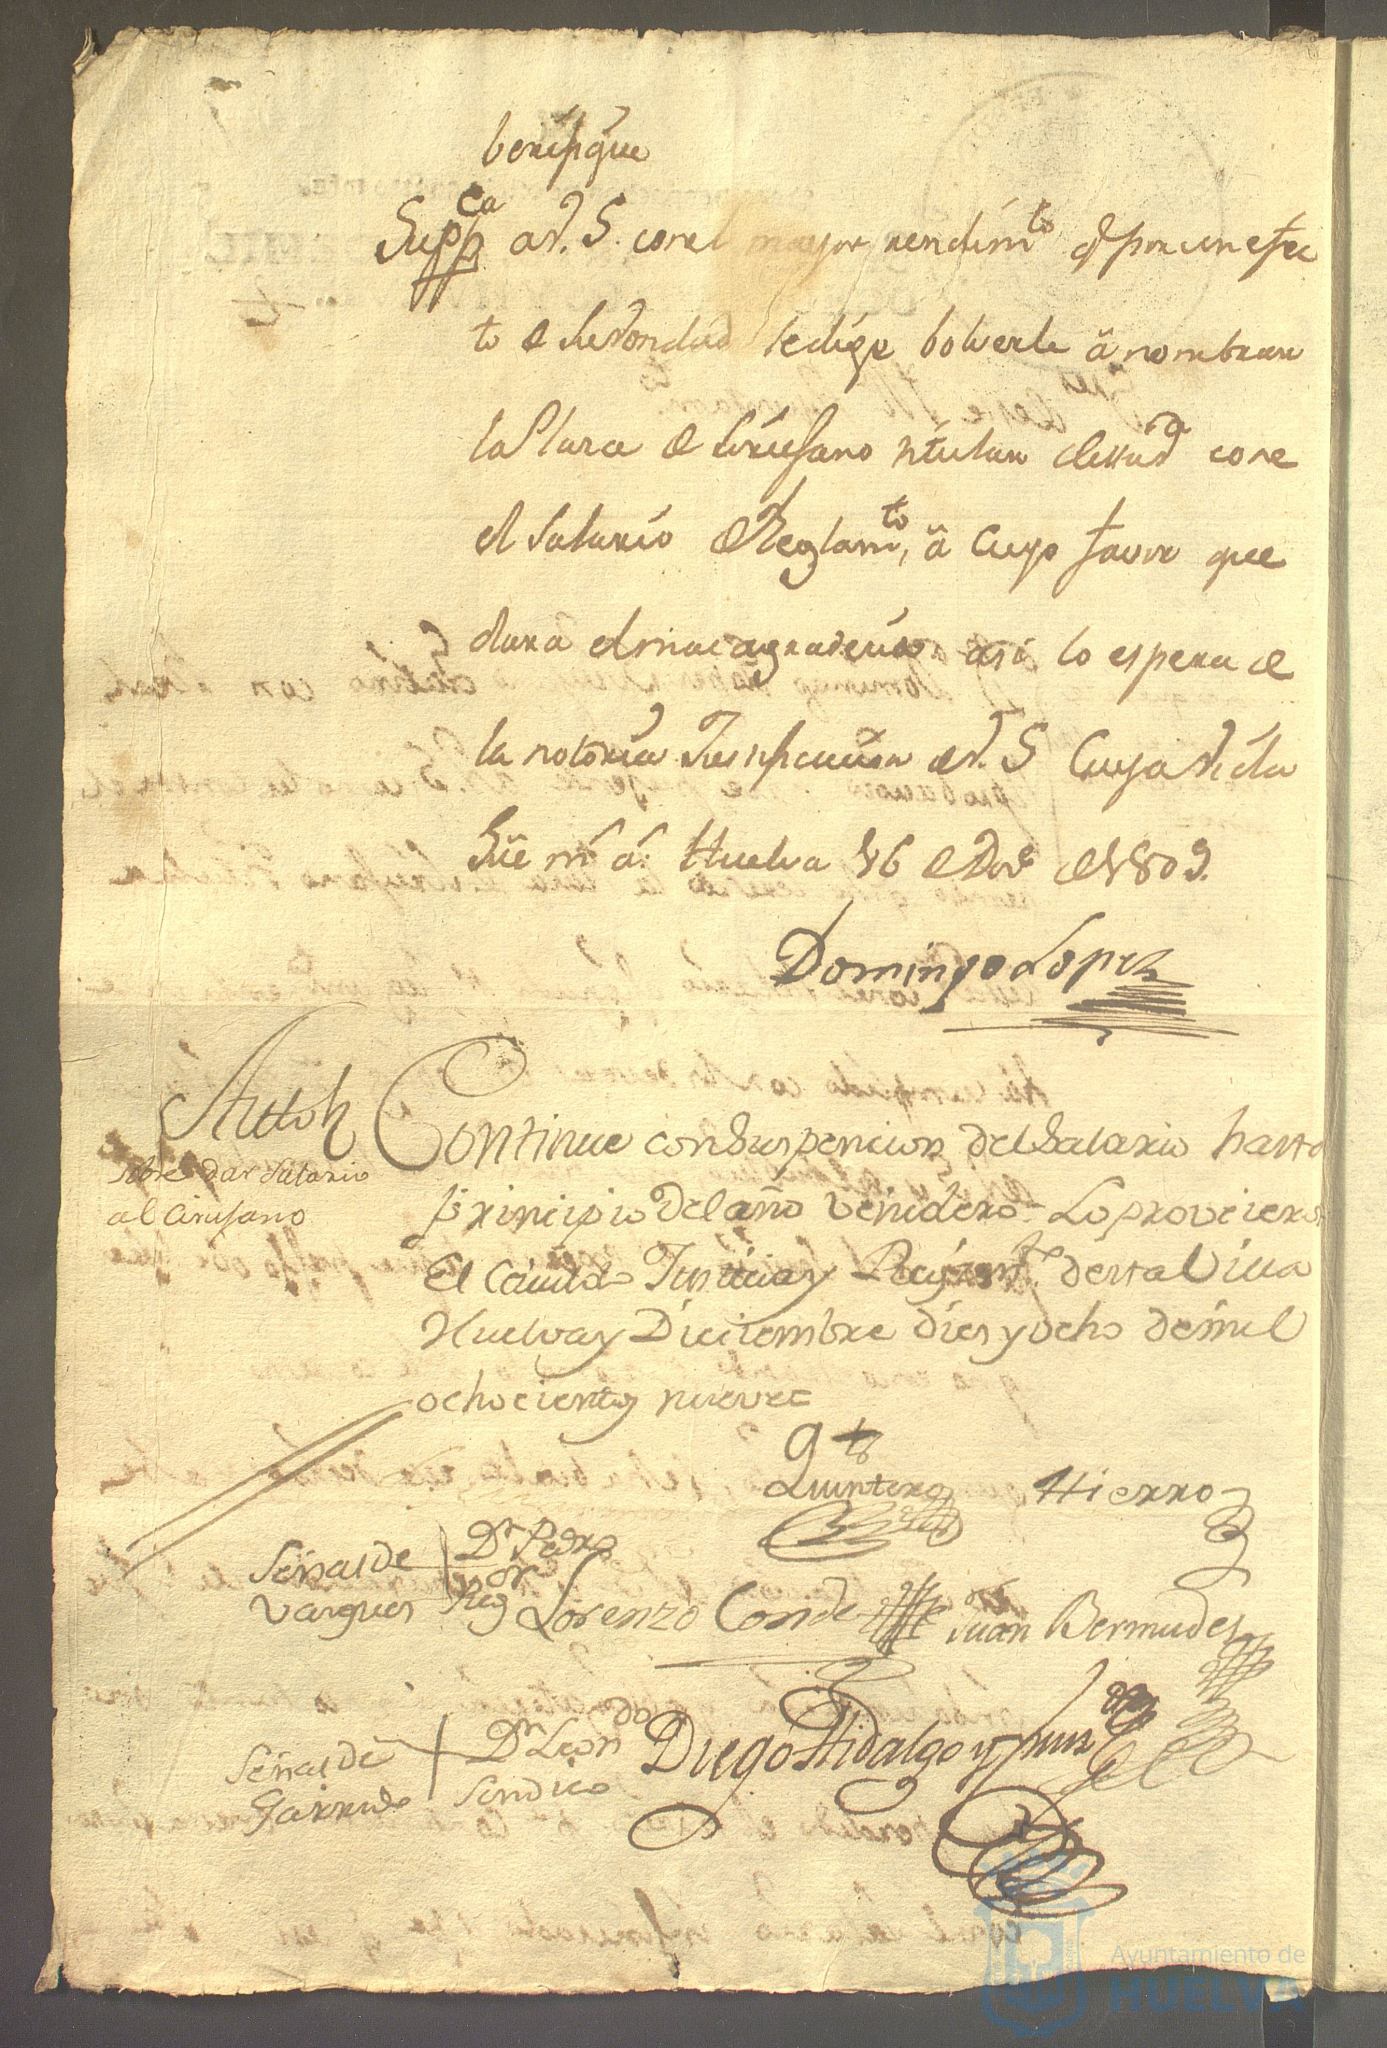 Suppca a V. S. con el mayor rendimto q por un efec
to de su vondad se dige bolverle â nombrar
la Plaza de Cirujano titular desta va con
el salario de Reglamto, â cuyo favor que
dara el mas agradecido asi lo espera de
la notoria Justificacion de V. S cuya vida
Huelva 16 de Dre de 1809.
Domingo Lopez
Auto
sobre dar salario
al Cirujano
Continue con suspencion del salario hasta
principio del año venidero. Lo proveieron
El Cavildo Justicia y Regimto. de esta Villa
Huelva y Diciembre dies y ocho de mil
ochocientos nueve
Quintero
Hierro
Señal de
Vargues
Dn Pedro
Regor
Lorenzo Conde
Juan Bermudes
Señal de
Garrido
Dn Leondo
Sindico
Diego Hidalgo y
Ayuntamiento de
HUELVA